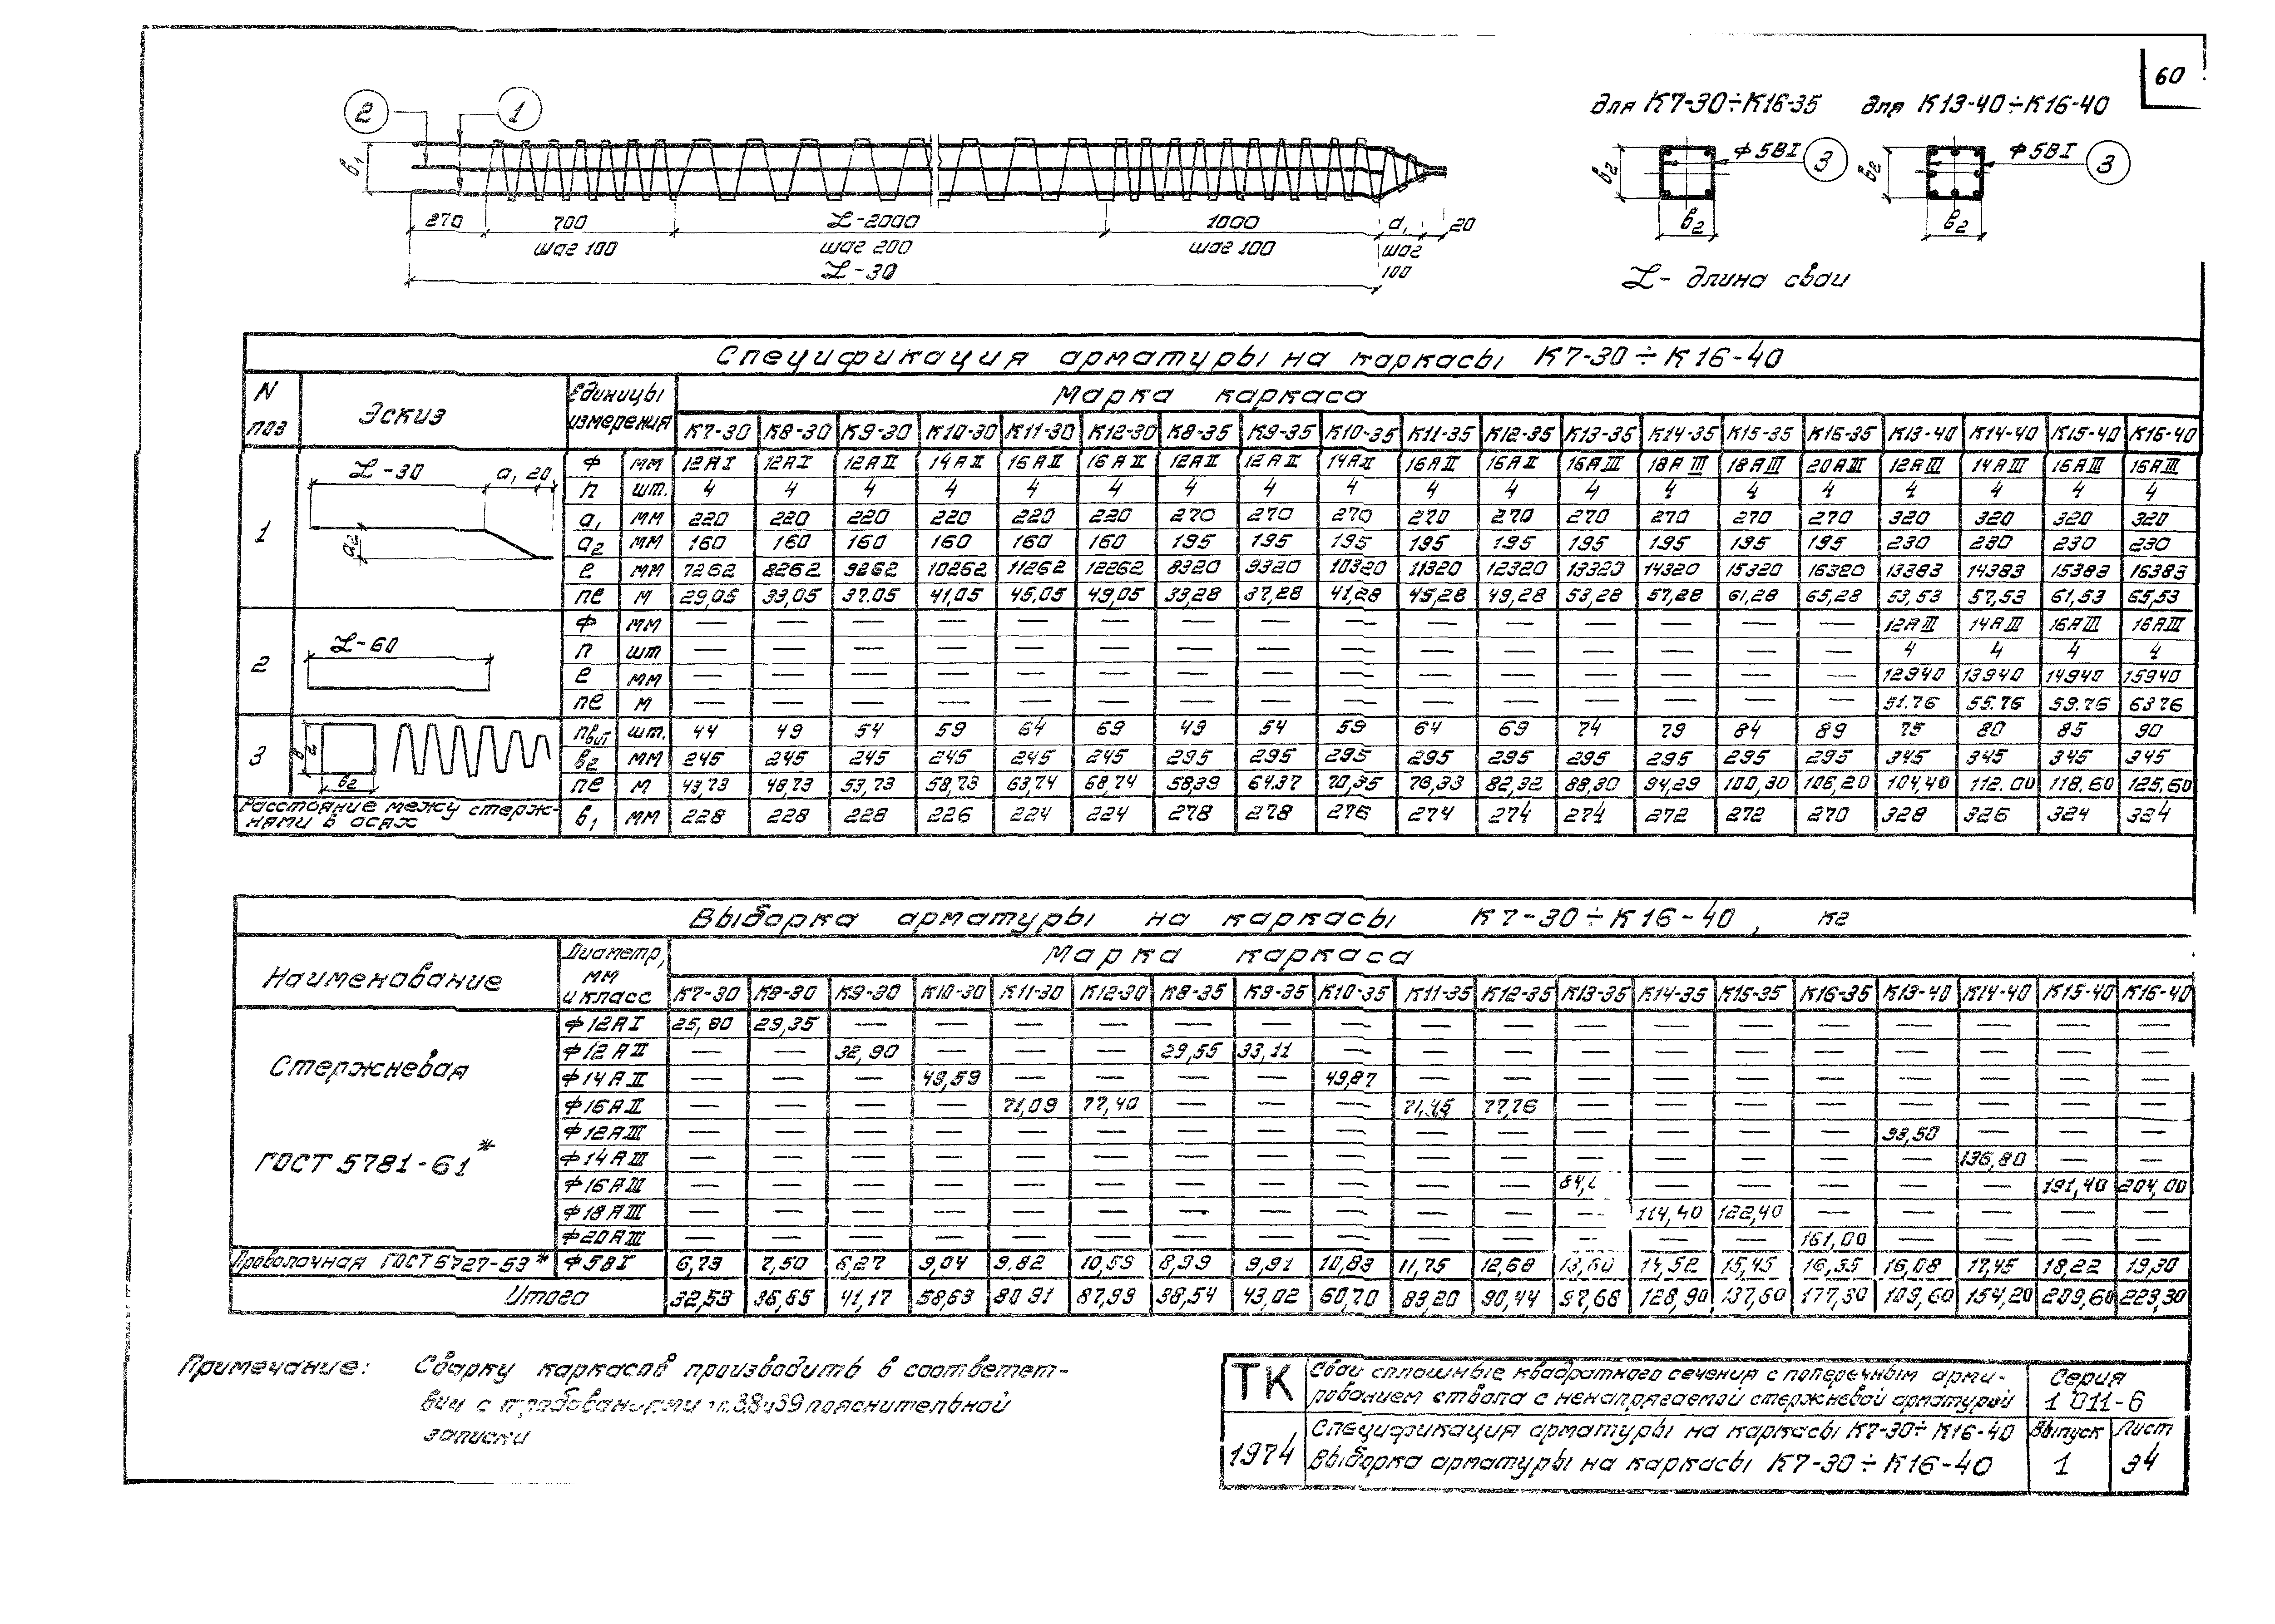 60
для К7-30÷К16-35 для К13-40÷К16-40
2 1
в₁
270 700 шаг 100 L-2000 шаг 200 1000 шаг 100 a₁ шаг 100 20
L-30
в₂ Ф5ВI 3 в₂
в₂ Ф5ВI 3 в₂
L- длина сваи
Спецификация арматуры на каркасы К7-30÷К16-40
N поз Эскиз Единицы измерения Марка каркаса
К7-30 К8-30 К9-30 К10-30 К11-30 К12-30 К8-35 К9-35 К10-35 К11-35 К12-35 К13-35 К14-35 К15-35 К16-35 К13-40 К14-40 К15-40 К16-40
1 L-30 a₁ 20 a₂
Ф мм 12АI 12АI 12АII 14АII 16АII 16АII 12АII 12АII 14АII 16АII 16АII 16АIII 18АIII 18АIII 20АIII 12АIII 14АIII 16АIII 16АIII
n шт. 4 4 4 4 4 4 4 4 4 4 4 4 4 4 4 4 4 4 4
a₁ мм 220 220 220 220 220 220 270 270 270 270 270 270 270 270 270 320 320 320 320
a₂ мм 160 160 160 160 160 160 195 195 195 195 195 195 195 195 195 230 230 230 230
ℓ мм 7262 8262 9262 10262 11262 12262 8320 9320 10320 11320 12320 13320 14320 15320 16320 13383 14383 15383 16383
nℓ м 29,05 33,05 37.05 41,05 45,05 49,05 33,28 37,28 41,28 45,28 49,28 53,28 57,28 61,28 65,28 53,53 57,53 61,53 65,53
2 L-60
Ф мм — — — — — — — — — — — — — — — 12АIII 14АIII 16АIII 16АIII
n шт — — — — — — — — — — — — — — — 4 4 4 4
ℓ мм — — — — — — — — — — — — — — — 12940 13940 14940 15940
nℓ м — — — — — — — — — — — — — — — 51.76 55.76 59.76 6376
3 в₂ в₂
nвит шт. 44 49 54 59 64 69 49 54 59 64 69 74 79 84 89 75 80 85 90
в₂ мм 245 245 245 245 245 245 295 295 295 295 295 295 295 295 295 345 345 345 345
nℓ м 43,73 48,73 53,73 58,73 63,74 68,74 58,39 64.37 70,35 76,33 82,32 88,30 94,29 100,30 106,20 104,40 112.00 118.60 125,60
Расстояние межу стерж-
нями в осях
в₁ мм 228 228 228 226 224 224 278 278 276 274 274 274 272 272 270 328 326 324 324
Выборка арматуры на каркасы К7-30÷К16-40, кг
Наименование Диаметр, мм и класс Марка каркаса
К7-30 К8-30 К9-30 К10-30 К11-30 К12-30 К8-35 К9-35 К10-35 К11-35 К12-35 К13-35 К14-35 К15-35 К16-35 К13-40 К14-40 К15-40 К16-40
Стержневая
ГОСТ 5781-61*
Ф12АI 25,80 29,35 — — — — — — — — — — — — — — — — —
Ф12АII — — 32,90 — — — 29,55 33,11 — — — — — — — — — — —
Ф14АII — — — 49,59 — — — — 49,87 — — — — — — — — — —
Ф16АII — — — — 71,09 77,40 — — — 71,45 77,76 — — — — — — — —
Ф12АIII — — — — — — — — — — — — — — — 93,50 — — —
Ф14АIII — — — — — — — — — — — — — — — — 136,80 — —
Ф16АIII — — — — — — — — — — — 84, — — — — — 191,40 204,00
Ф18АIII — — — — — — — — — — — — 114,40 122,40 — — — — —
Ф20АIII — — — — — — — — — — — — — — 161,00 — — — —
Проволочная ГОСТ 6727-53* Ф5ВI 6,73 7,50 8,27 9,04 9.82 10,59 8,99 9,91 10,83 11,75 12,68 13,60 14,52 15,45 16,35 16,08 17,45 18,22 19,30
Итого 32,53 36,85 41,17 58,63 80 91 87,99 38,54 43,02 60,70 83,20 90,44 97,68 128,90 137,80 177,30 109,60 154,20 209,60 223,30
Примечание: Сварку каркасов производить в соответст-
вии с требованиями п.38и39 пояснительной
записки
ТК Сваи сплошные квадратного сечения с поперечным арми-
рованием ствола с ненапрягаемой стержневой арматурой
Серия
1 011-6
1974 Спецификация арматуры на каркасы К7-30÷К16-40
Выборка арматуры на каркасы К7-30÷К16-40
Выпуск Лист
1 34